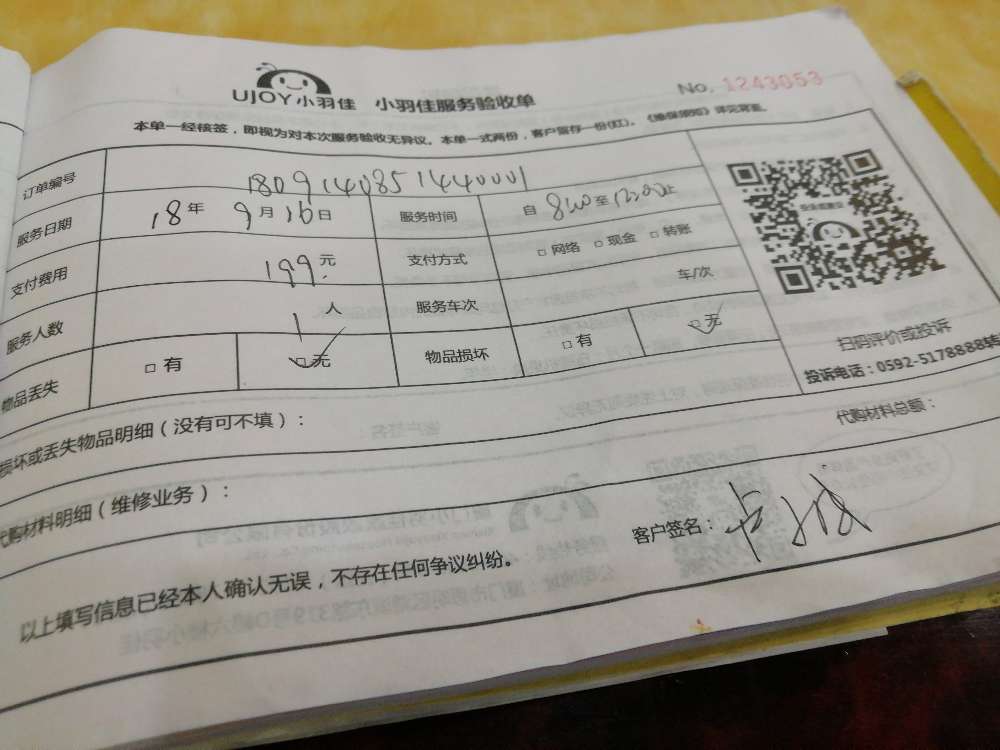 UJOY小羽佳 小羽佳服务验收单 No. 1243053
本单一经核签，即视为对本次服务验收无异议。本单一式两份，客户留存一份(红)。《维保须知》详见背面。
订单编号 1809140851440001
服务日期 18年 9月16日 服务时间 自 8:00 至 12:00 止
支付费用 199元 支付方式 □ 网络 □ 现金 □ 转账
服务人数 1人 服务车次 车/次
物品丢失 □ 有 □ 无 物品损坏 □ 有 □ 无
扫码评价或投诉
投诉电话：0592-5178888转
损坏或丢失物品明细（没有可不填）：
代购材料明细（维修业务）： 代购材料总额：
客户签名：
以上填写信息已经本人确认无误，不存在任何争议纠纷。